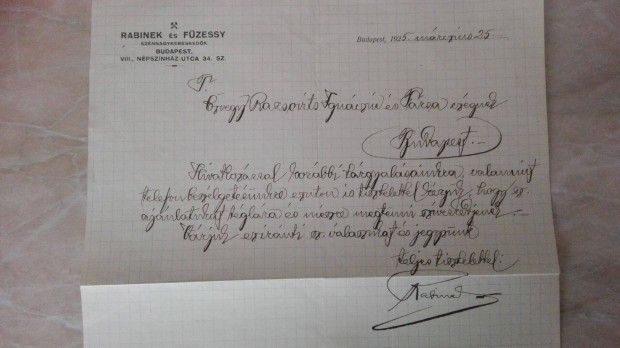 RABINEK ÉS FÜZESSY
SZÉNNAGYKERESKEDŐK
BUDAPEST,
VIII., NÉPSZINHÁZ-UTCA 34. SZ.
Budapest, 1925. március 25
T.
Özvegy Razsovits Ignácné és Társa cégnek
Budapest.-
Hivatkozással korábbi tárgyalásainkra, valamint
telefonbeszélgetésünkre ezúton is tisztelettel kérjük, hogy sz.
ajánlatukat téglára és mészre megtenni szíveskedjenek.-
Várjuk eziránti sz. válaszukat és jegyzünk
teljes tisztelettel:
Rabinek